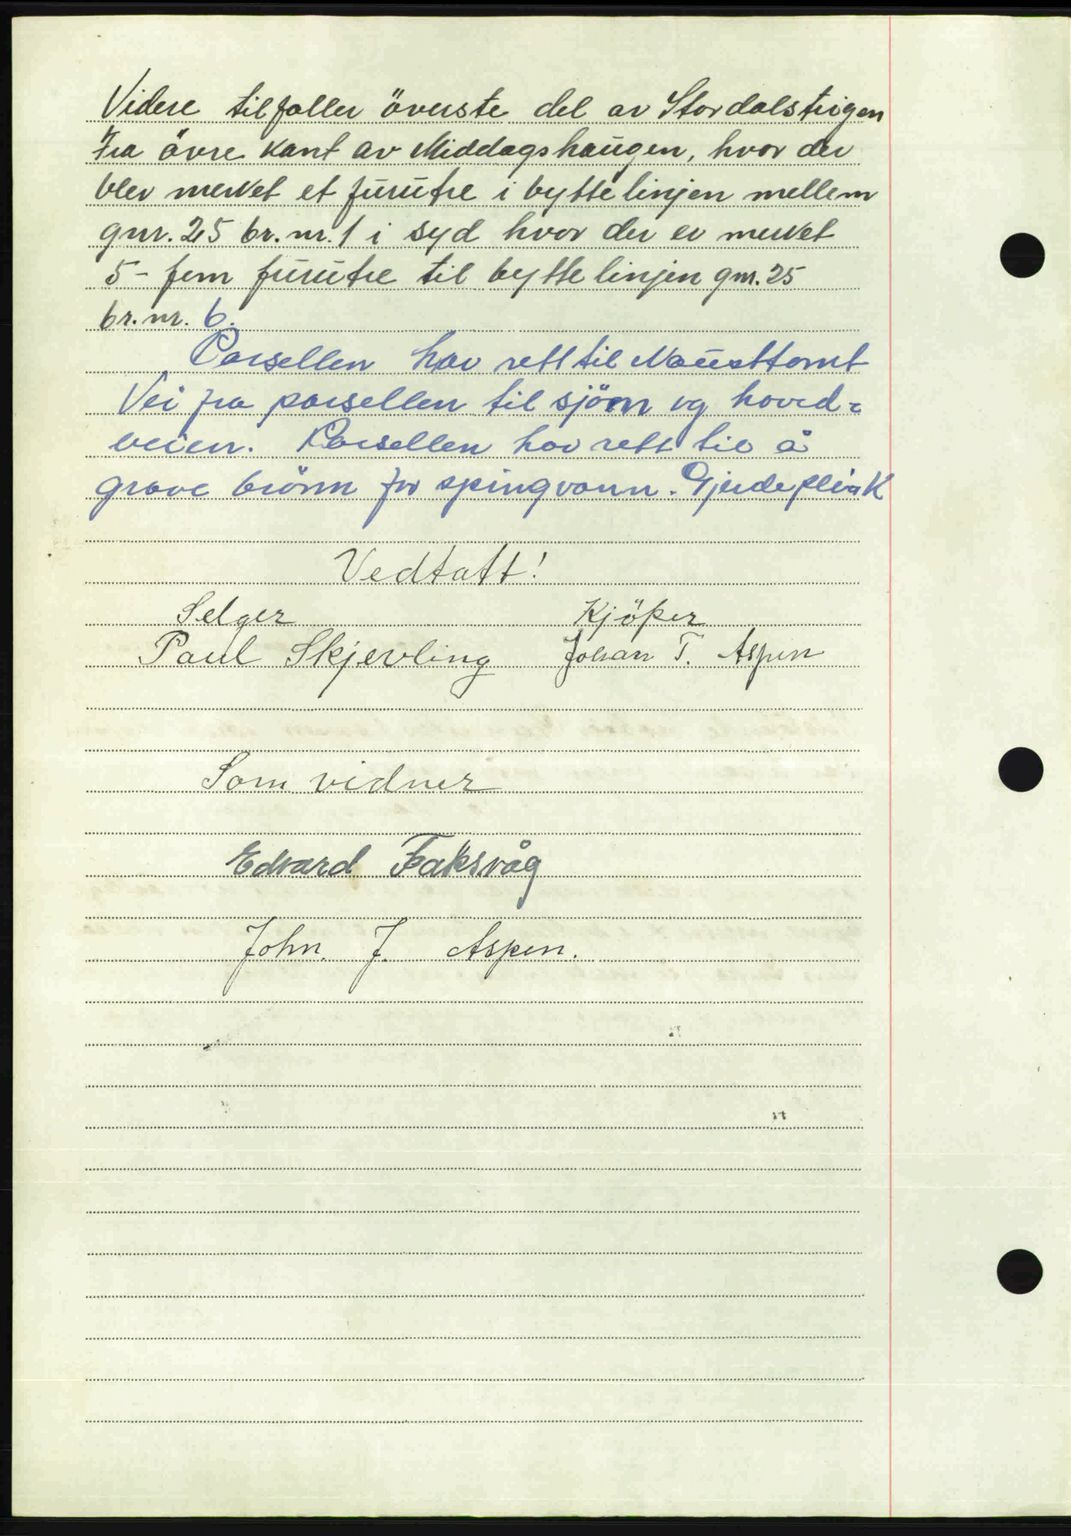 Videre tilfaller överste del av Stordalsteigen
fra övre kant av Middagshaugen, hvor der
blev merket et furutre i byttelinjen mellem
gnr. 25 br. nr. 1 i syd hvor der er merket
5 - fem furutre til byttelinjen gnr. 25
br. nr. 6.
Parsellen har rett til Nausttomt
Vei fra parsellen til sjöen og hoved=
veien. Parsellen har rett til å
grave brönn for springvann. Gjerdeplikt
Vedtatt!
Selger Kjöper
Paul Skjevling Johan T. Aspen
Som vidner
Edvard Faksvåg
John. J. Aspen.